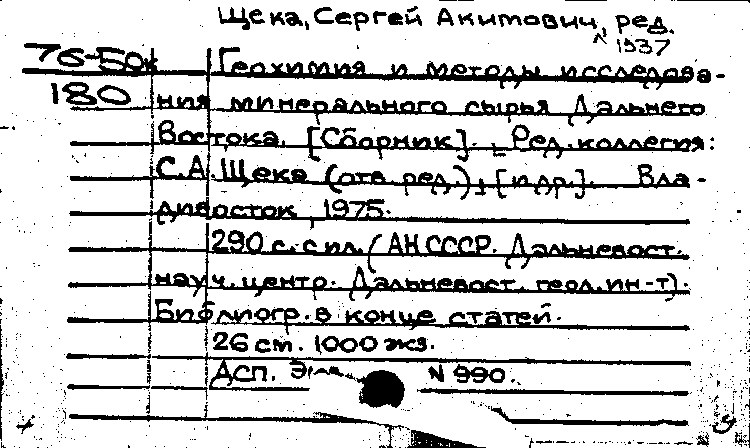 Щека, Сергей Акимович, ред.
1937
76-50к
180
Геохимия и методы исследова-
ния минерального сырья Дальнего
Востока. [Сборник]. Ред. коллегия:
С.А. Щека (отв. ред.), [и др.]. Вла-
дивосток, 1975.
290 с. с ил. (АН СССР. Дальневост.
науч. центр. Дальневост. геол. ин-т).
Библиогр. в конце статей.
26 см. 1000 экз.
Дсп. N 990.